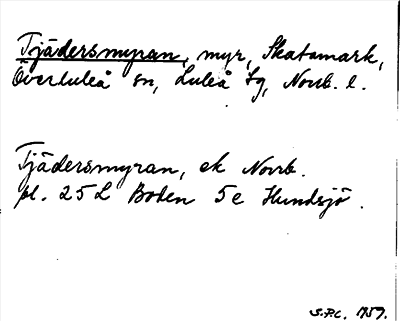 Tjädersmyran, myr, Skatamark,
Överluleå sn, Luleå tg, Norrb. l.
Tjädersmyran, ek Norrb.
pl. 25 L Boden 5e Hundsjö.
S.P.C. 1959.